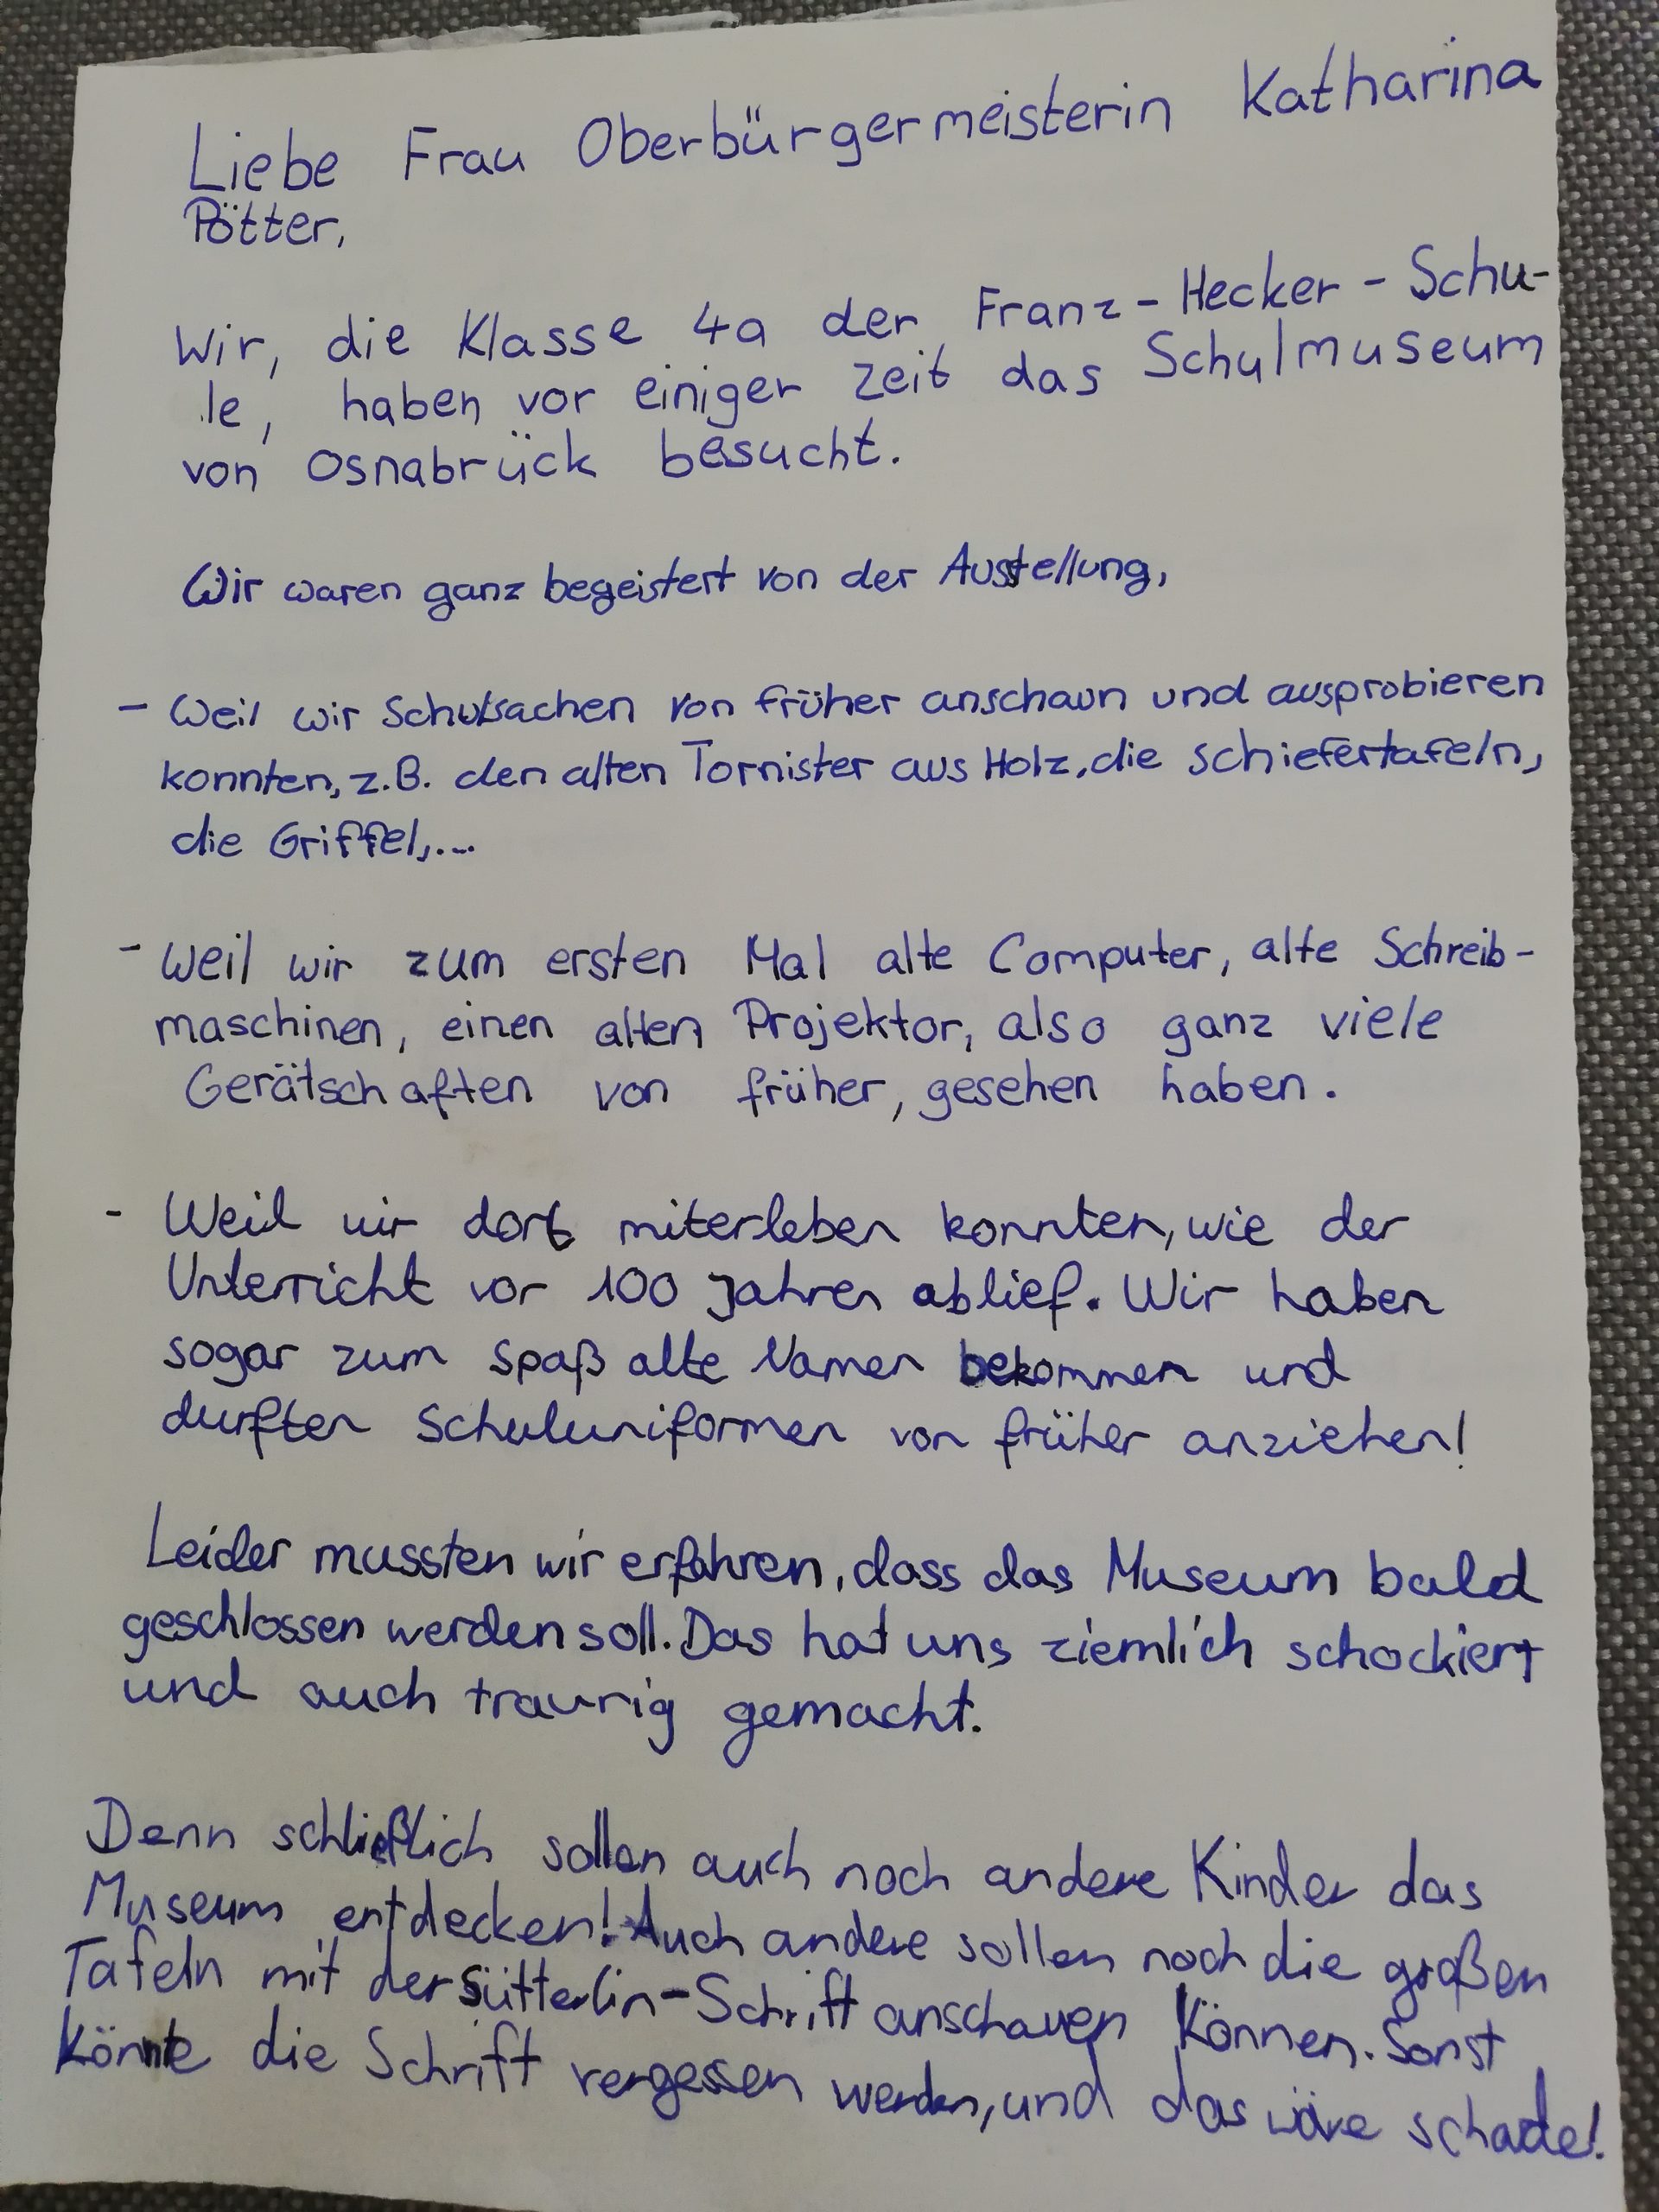 Liebe Frau Oberbürgermeisterin Katharina
Pötter,
Wir, die Klasse 4a der Franz-Hecker-Schu-
le, haben vor einiger Zeit das Schulmuseum
von Osnabrück besucht.
Wir waren ganz begeistert von der Ausstellung,
- Weil wir Schulsachen von früher anschaun und ausprobieren
konnten, z.B. den alten Tornister aus Holz, die Schiefertafeln,
die Griffel,...
- Weil wir zum ersten Mal alte Computer, alte Schreib-
maschinen, einen alten Projektor, also ganz viele
Gerätschaften von früher, gesehen haben.
- Weil wir dort miterleben konnten, wie der
Unterricht vor 100 Jahren ablief. Wir haben
sogar zum Spaß alte Namen bekommen und
durften Schuluniformen von früher anziehen!
Leider mussten wir erfahren, dass das Museum bald
geschlossen werden soll. Das hat uns ziemlich schockiert
und auch traurig gemacht.
Denn schließlich sollen auch noch andere Kinder das
Museum entdecken! Auch andere sollen noch die großen
Tafeln mit der Sütterlin-Schrift anschauen können. Sonst
könnte die Schrift vergessen werden, und das wäre schade!